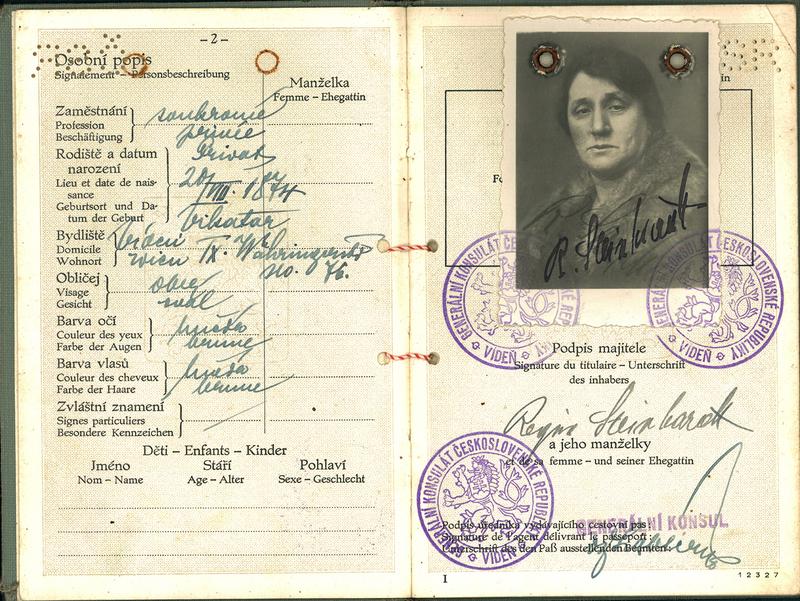 – 2 –
Osobní popis
Signalement – Personsbeschreibung
Manželka
Femme – Ehegattin
Zaměstnání
Profession
Beschäftigung
soukromé
privée
Privat
Rodiště a datum
narození
Lieu et date de nais-
sance
Geburtsort und Da-
tum der Geburt
20/VIII. 1874
Bydliště
Domicile
Wohnort
Wien IX. Währingerstr
No. 76.
Obličej
Visage
Gesicht
oval
Barva očí
Couleur des yeux
Farbe der Augen
hnědá
brune
Barva vlasů
Couleur des cheveux
Farbe der Haare
hnědá
brune
Zvláštní znamení
Signes particuliers
Besondere Kennzeichen
Děti – Enfants – Kinder
Jméno Stáří Pohlaví
Nom – Name Age – Alter Sexe – Geschlecht
R. Steinhardt
GENERÁLNÍ KONSULÁT ČESKOSLOVENSKÉ REPUBLIKY
VÍDEŇ
GENERÁLNÍ KONSULÁT ČESKOSLOVENSKÉ REPUBLIKY
VÍDEŇ
Podpis majitele
Signature du titulaire – Unterschrift
des inhabers
a jeho manželky
et de sa femme – und seiner Ehegattin
GENERÁLNÍ KONSULÁT ČESKOSLOVENSKÉ REPUBLIKY
VÍDEŇ
GENERÁLNÍ KONSUL
Podpis úředníka vydávajícího cestovní pas:
Signature de l'agent délivrant le passeport:
Unterschrift des den Paß ausstellenden Beamten:
I
12327